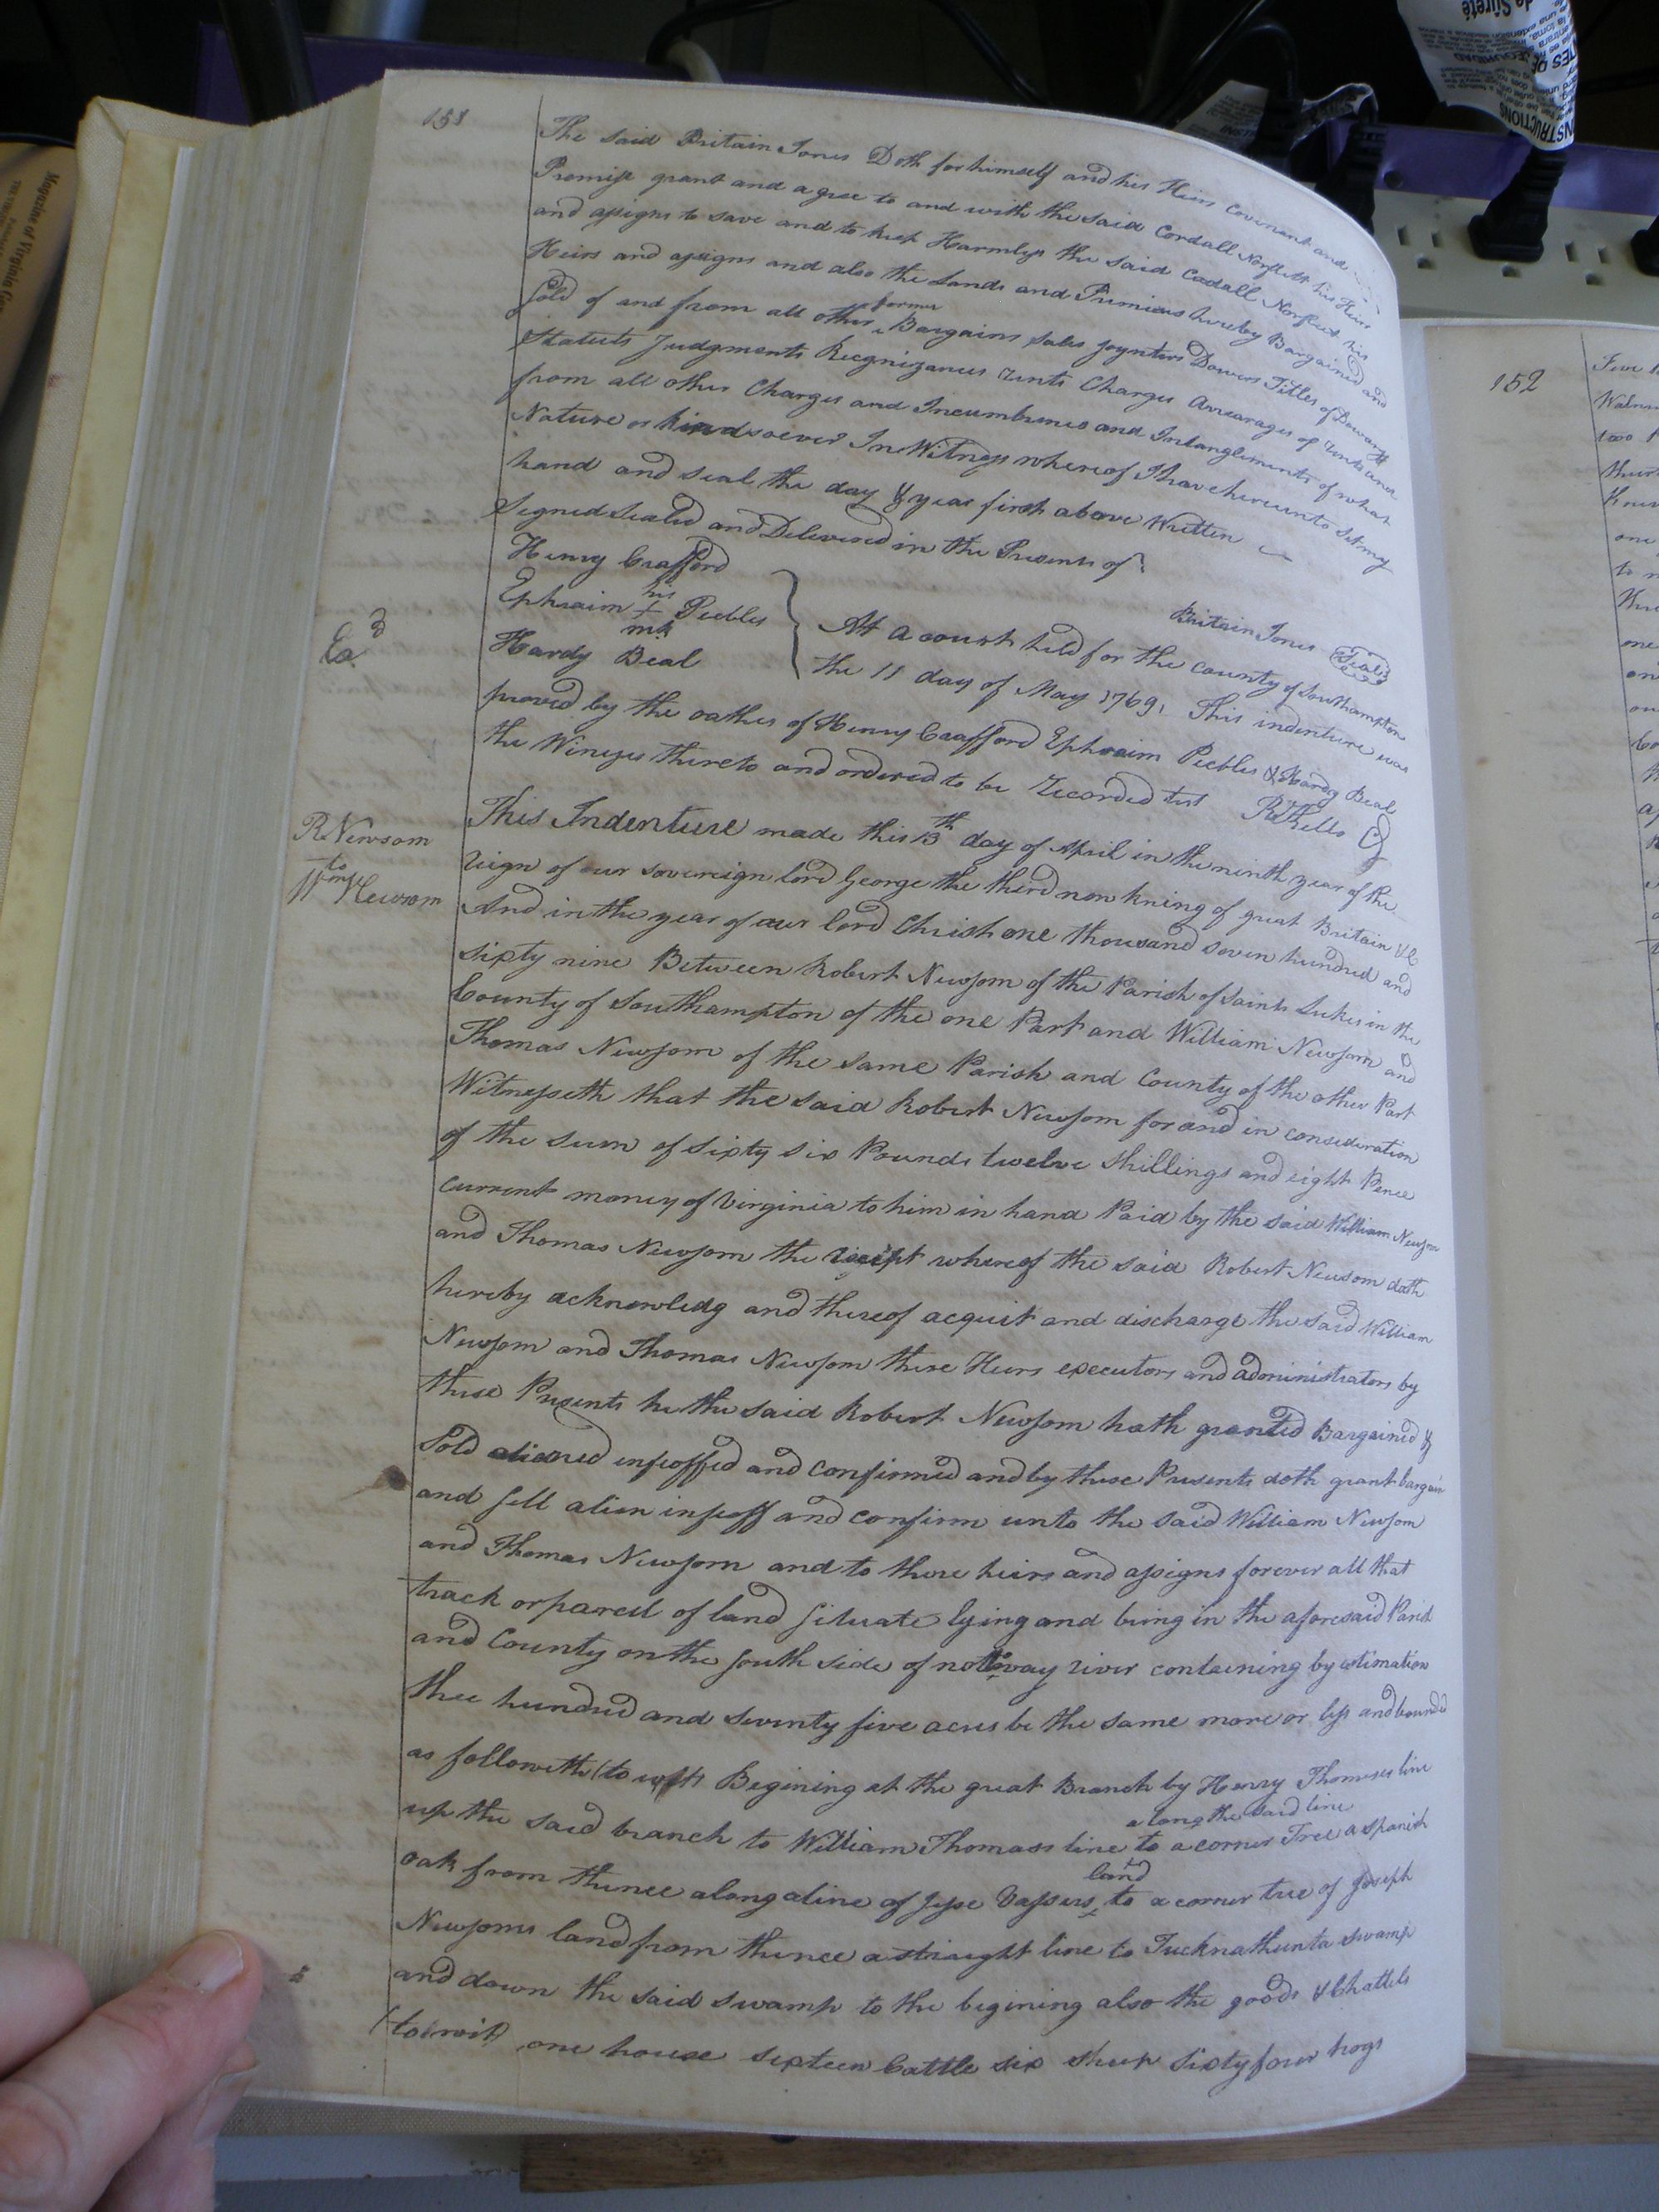 151
The said Britain Jones Doth for himself and his Heirs Covenant and
Promise grant and agree to and with the said Cordall Norfleet his Heirs
and assigns to save and to keep Harmless the said Cordall Norfleet his
Heirs and assigns and also the Lands and Premises hereby Bargained and
former
Sold of and from all other Bargains Sales Joynters Dowers Titles of Dowers
Statuts Judgments Recognizances rents Charges arrearages of rents and
from all other Charges and Incumbrances and Intanglements of what
Nature or kindsoever In Witness whereof I have hereunto set my
hand and seal the day & year first above Written
Signed Sealed and Delivered in the Presents of
Henry Crafford
his
Ephraim + Peebles
mk
Hardy Beal
Britain Jones Seal
Ed
At a court held for the county of Southampton
the 11 day of May 1769, This indenture was
proved by the oathes of Henry Crafford Ephraim Peebles & Hardy Beal
the Winesses thereto and ordered to be recorded test
R Kello
R Newsom
to
Wm Newsom
This Indenture made this 13th day of April in the ninth year of the
reign of our sovereign lord George the third now kning of great Britain &c
And in the year of our lord Christ one thousand seven hundred and
sixty nine Between Robert Newsom of the Parish of Saint Lukes in the
County of Southampton of the one Part and William Newsom and
Thomas Newsom of the same Parish and County of the other Part
Witnesseth that the said Robert Newsom for and in consideration
of the sum of sixty six Pounds twelve shillings and eight Pence
current money of Virginia to him in hand Paid by the said William Newsom
and Thomas Newsom the receipt whereof the said Robert Newsom doth
hereby acknowledg and thereof acquit and discharge the said William
Newsom and Thomas Newsom there Heirs executors and administrators by
these Presents he the said Robert Newsom hath granted Bargained &
Sold aliened infeoffed and confirmed and by these Presents doth grant bargain
and sell alien infeoff and confirm unto the said William Newsom
and Thomas Newsom and to there heirs and assigns forever all that
track or parcel of land situate lying and being in the aforesaid Parish
and County on the south side of nottoway river containing by estimation
thee hundred and seventy five acres be the same more or less and bounded
as followeth (to wit) Begining at the great Branch by Henry Thomases line
along the said line
up the said branch to William Thomass line to a corner Tree a spanish
land
oak from thence along a line of Jesse Vassers to a corner tree of Joseph
Newsoms land from thence a straight line to Tucknathunta swamp
and down the said swamp to the begining also the goods & Chattels
(to wit) one house sixteen Cattle six sheep sixty four hogs
152
one
to
one
Magazine of Virginia
de Sûreté
INSTRUCTIONS